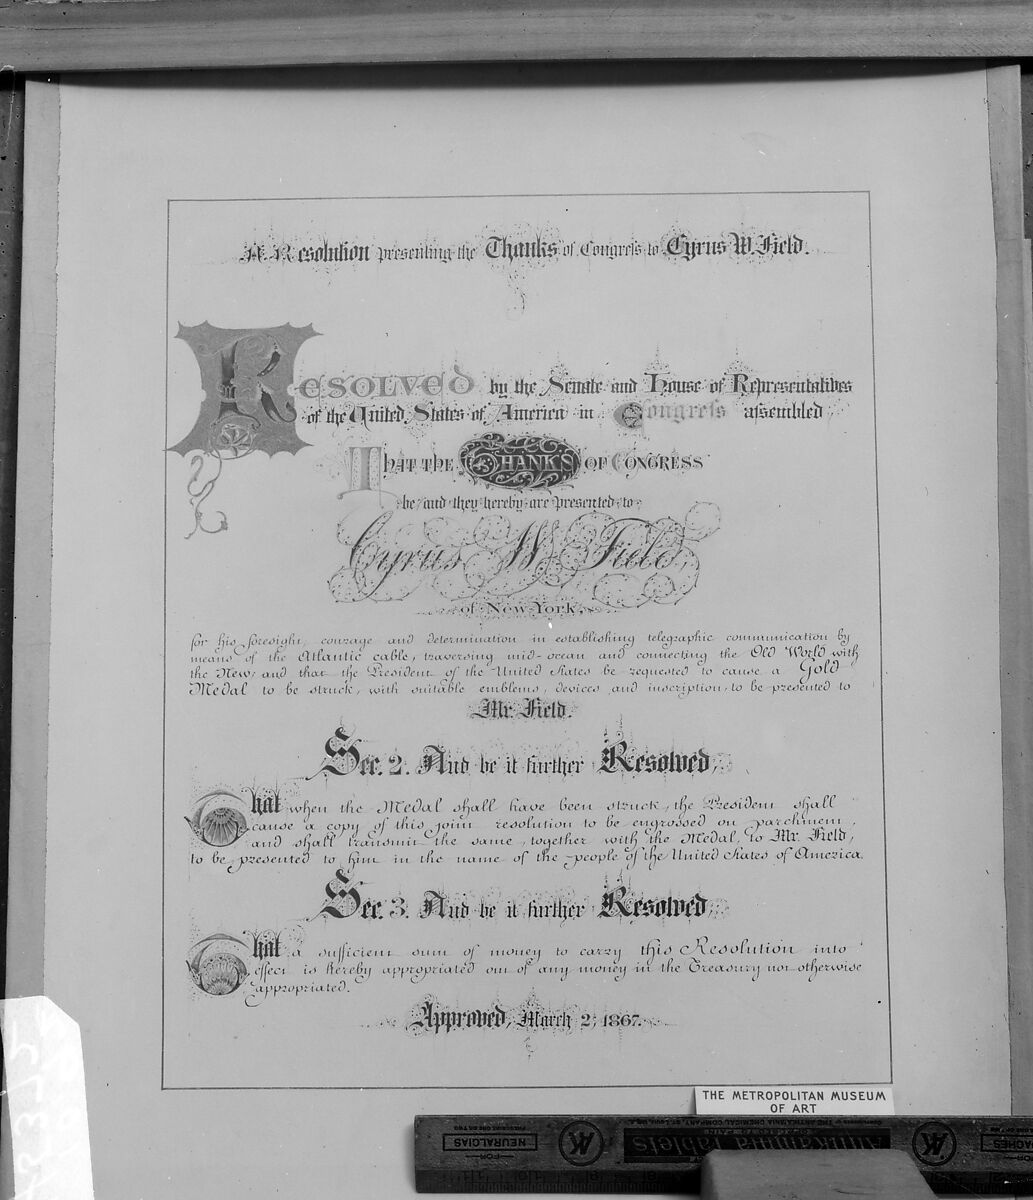 A Resolution presenting the Thanks of Congress to Cyrus W. Field.
Resolved by the Senate and House of Representatives
of the United States of America in Congress assembled
That the Thanks of Congress
be and they hereby are presented to
Cyrus W. Field,
of New York,
for his foresight, courage and determination in establishing telegraphic communication by
means of the Atlantic cable, traversing mid-ocean and connecting the Old World with
the New; and that the President of the United States be requested to cause a Gold
Medal to be struck, with suitable emblems, devices and inscription, to be presented to
Mr. Field.
Sec. 2. And be it further Resolved,
That when the Medal shall have been struck, the President shall
cause a copy of this joint resolution to be engrossed on parchment,
and shall transmit the same, together with the Medal, to Mr. Field,
to be presented to him in the name of the people of the United States of America.
Sec. 3. And be it further Resolved,
That a sufficient sum of money to carry this Resolution into
effect is hereby appropriated out of any money in the Treasury not otherwise
appropriated.
Approved, March 2, 1867.
THE METROPOLITAN MUSEUM
OF ART
FOR
NEURALGIAS
AK
Tablets